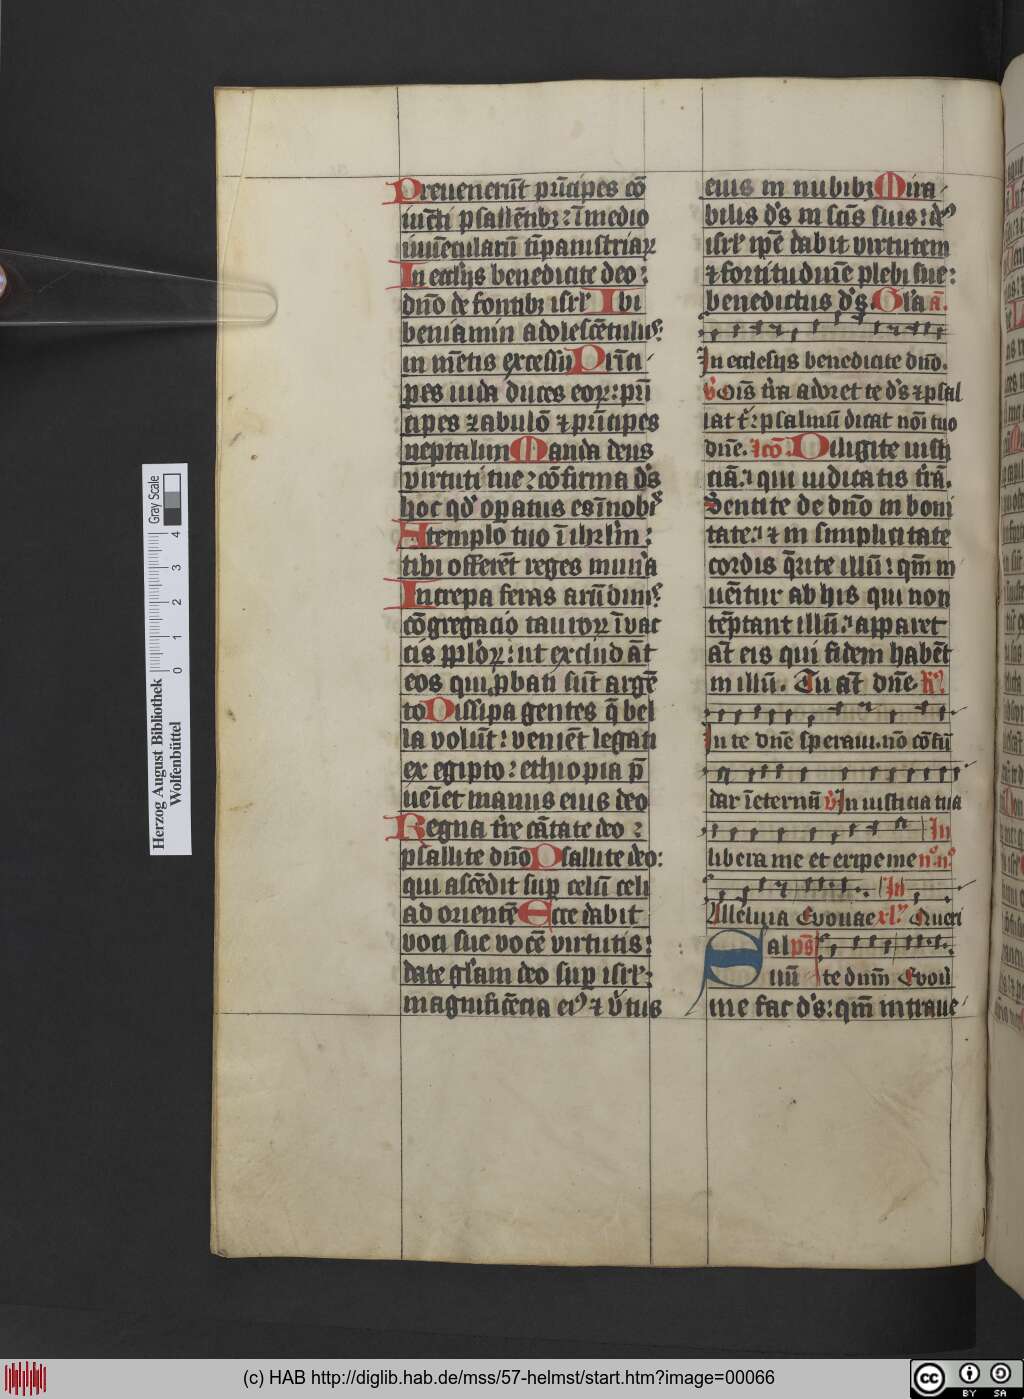 Preuenerūt prīcipes cō
iūcti psallētibꝫ: ī medio
iuuēcularū tīpanistriaꝝ
In ecclijs benedicite deo:
dn̄o de fontibꝫ isrl̓ Ibi
beniamin adolescētulus:
in mētis excessu Prīci
pes iuda duces eoꝝ: prī
cipes zabulō ⁊ prīcipes
neptalim Manda deus
virtuti tue: cōfirma d̓s
hoc qd̓ oꝑatus es ī nobis
A templo tuo ī ihrlm̄:
tibi offerēt reges mun̓a
Increpa feras arūdinis:
cōgregacio tauroꝝ ī vac
cis pplo̓ꝝ: ut excludāt
eos qui ꝓbati sūt argē
to Dissipa gentes q̄ bel
la volūt: veniēt legati
ex egipto: ethiopia p̄
ueīet manus eius deo
Regna tr̓e cātate deo:
psallite dn̄o Psallite deo:
qui ascēdit suꝑ celū celi
ad orientē Ecce dabit
voci sue vocē virtutis:
date gl̓am deo suꝑ isrl̓:
magnificēcia eiꝰ ⁊ v̓tus
eius in nubibꝫ Mira
bilis d̓s in scīs suis: deꝰ
isrl̓ ip̄e dabit virtutem
⁊ fortitudinē plebi sue:
benedictus d̓s. Gl̓a a̅.
In ecclesijs benedicite dn̄o.
v̓ Oīs tr̓a adoret te d̓s ⁊ psal
lat t̓: psalmū dicat nōi tuo
dn̄e. Icō. Diligite iusti
ciā: qui iudicatis tr̓ā.
Sentite de dn̄o in boni
tate: ⁊ in simplicitate
cordis q̄rite illū: qm̄ in
uēitur ab his qui non
tēptant illū: apparet
at̄ eis qui fidem habēt
in illū. Tu at̄ dn̄e. R̓
In te dn̄e speraui. nō cōfū
dar ī eternū v̓ In iusticia tua
libera me et eripe me
In
Alleluia Euouae
In
Sal ps̄
uū te dn̄m Euou
me fac d̓s: qm̄ intraue
Herzog August Bibliothek
Wolfenbüttel
Gray Scale
0 1 2 3 4
(c) HAB http://diglib.hab.de/mss/57-helmst/start.htm?image=00066
cc BY SA